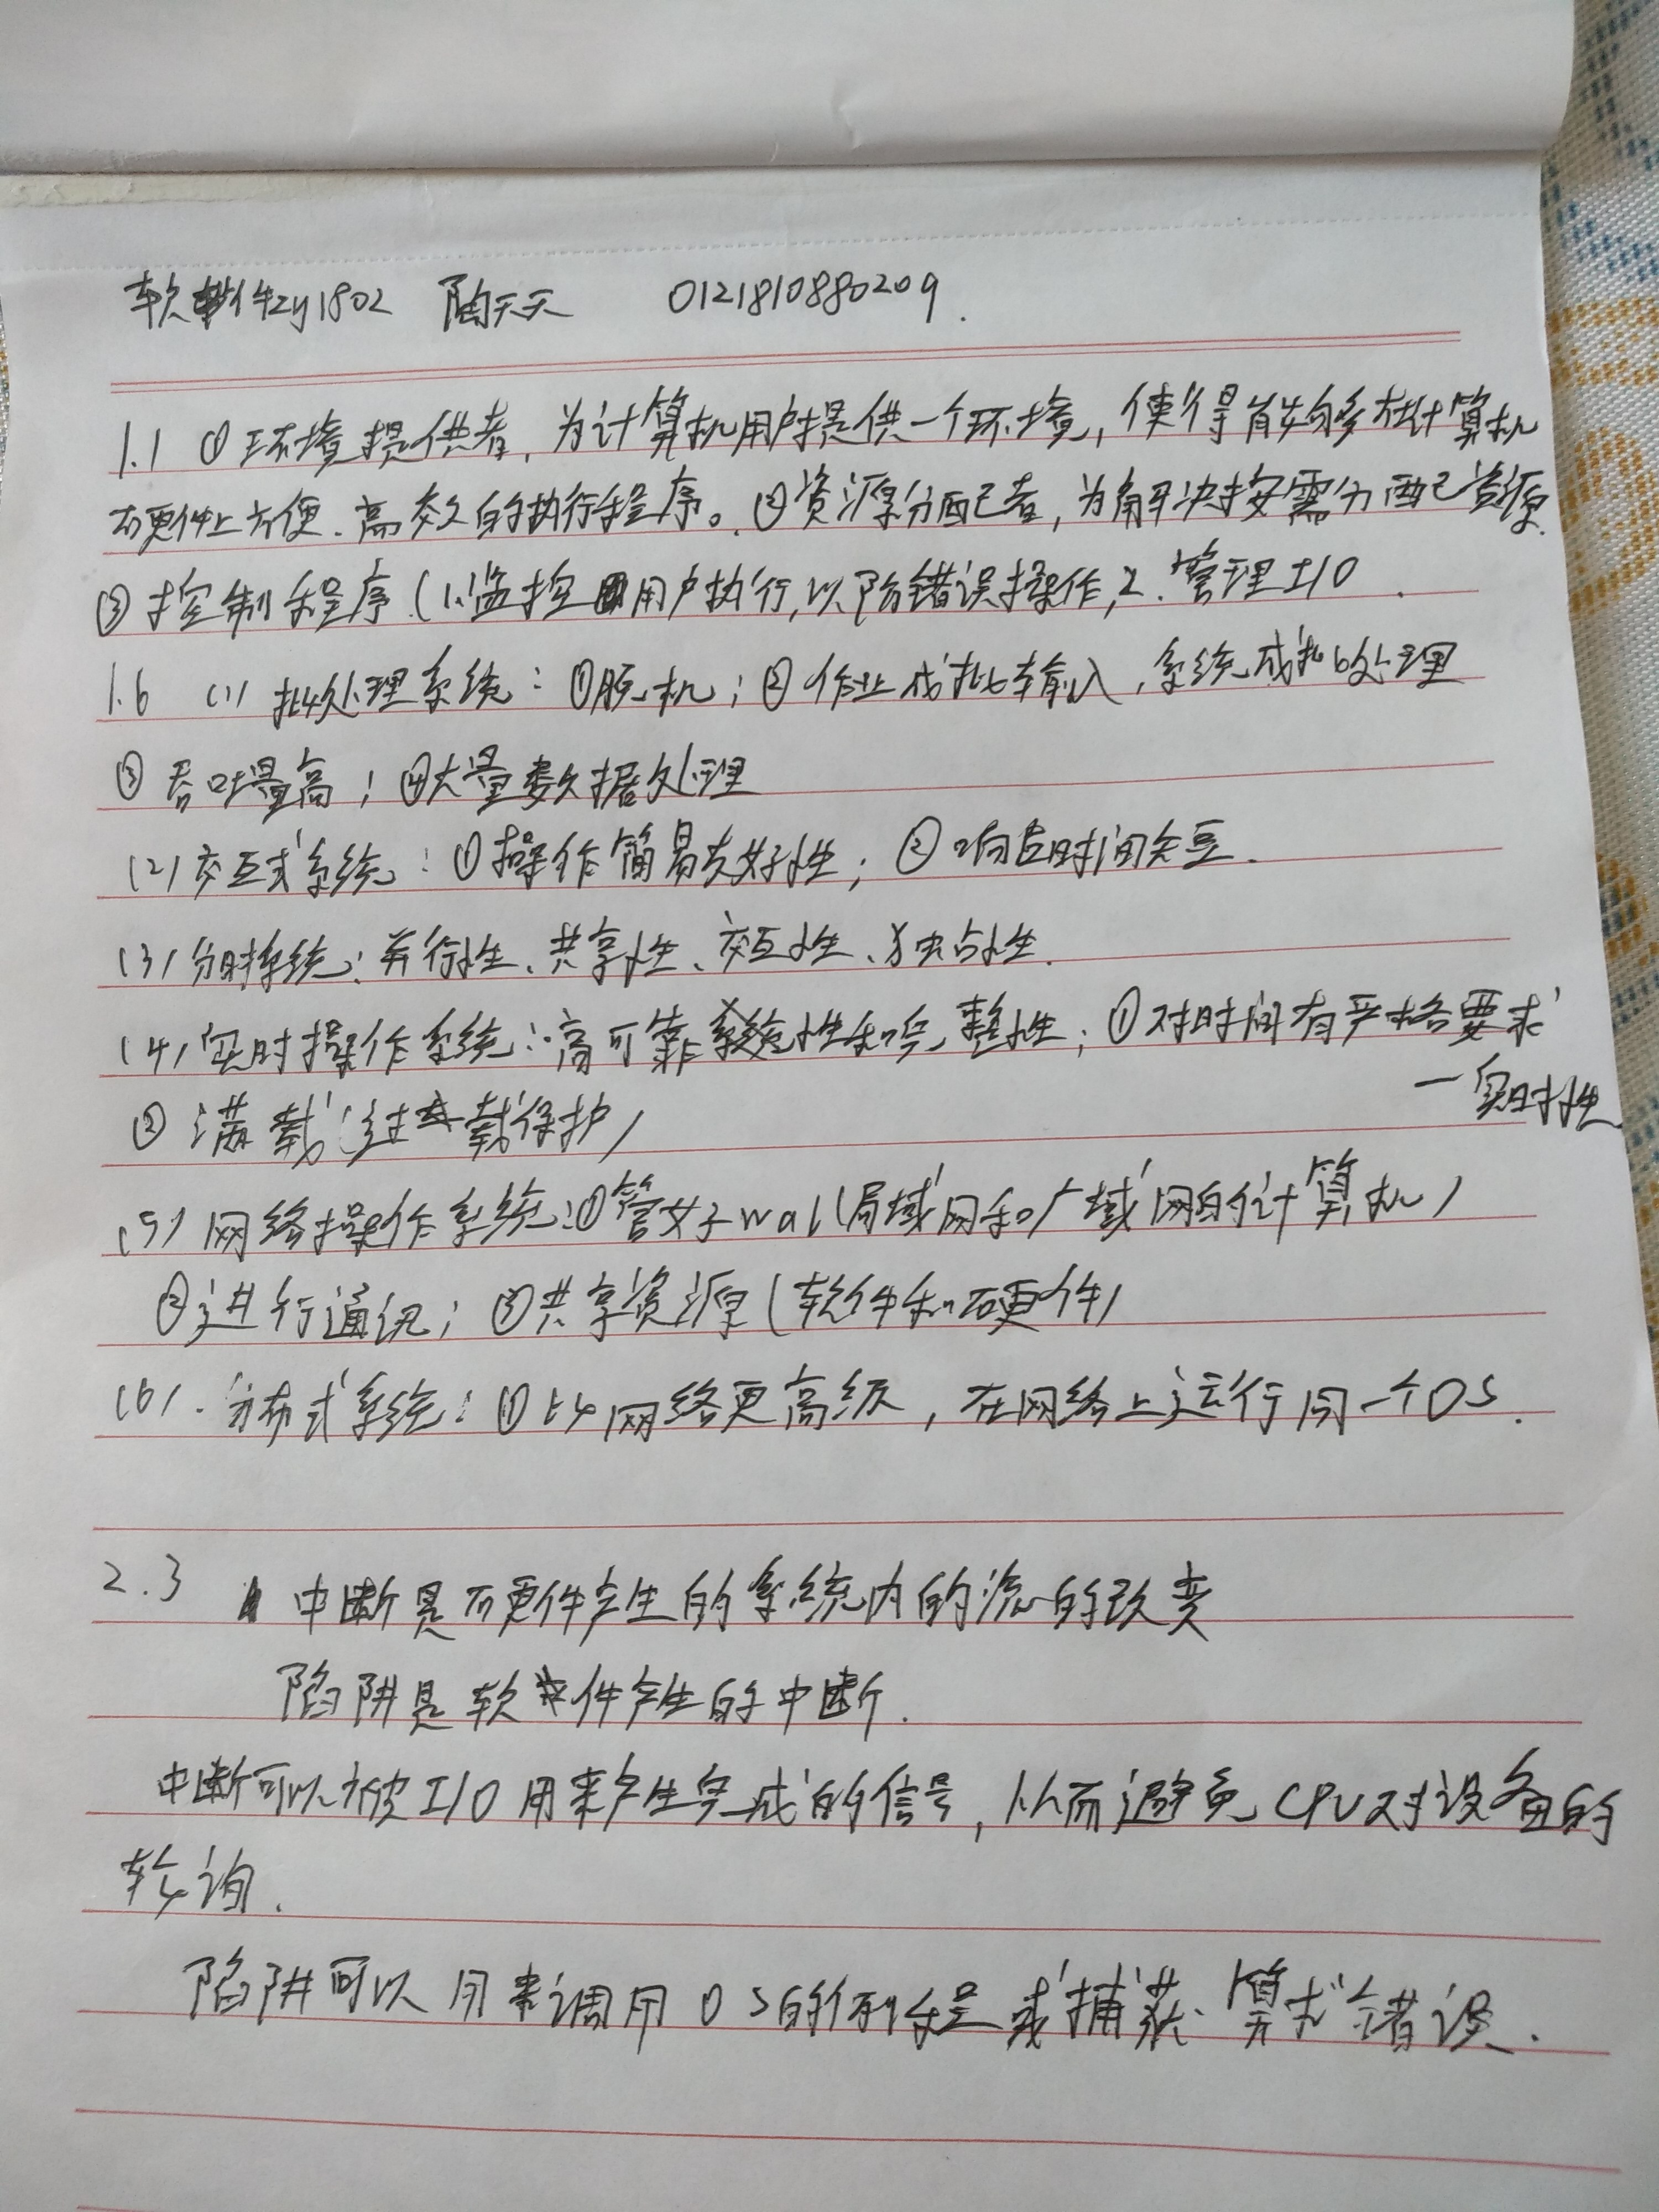 软件zy1802 陶天天 0121810880209.
1.1 ①环境提供者,为计算机用户提供一个环境,使得能够在计算机
硬件上方便、高效的执行程序。②资源分配者,为解决按需分配资源.
③控制程序(1.监控用户执行,以防错误操作,2.管理I/O.
1.6 (1)批处理系统:①脱机;②作业成批输入,系统成批处理
③吞吐量高;④大量数据处理
(2)交互式系统:①操作简易友好性;②响应时间短.
(3)分时系统:并行性、共享性、交互性、独占性.
(4)实时操作系统:高可靠性和完整性;①对时间有严格要求
—实时性
②满载(过载保护)
(5)网络操作系统:①管好wal(局域网和广域网的计算机)
②进行通讯;③共享资源(软件和硬件)
(6).分布式系统:①比网络更高级,在网络上运行同一个OS.
2.3 中断是硬件产生的系统内的流的改变
陷阱是软件产生的中断.
中断可以被I/O用来产生完成的信号,从而避免CPU对设备的
轮询.
陷阱可以用来调用OS的例程或捕获算术错误.